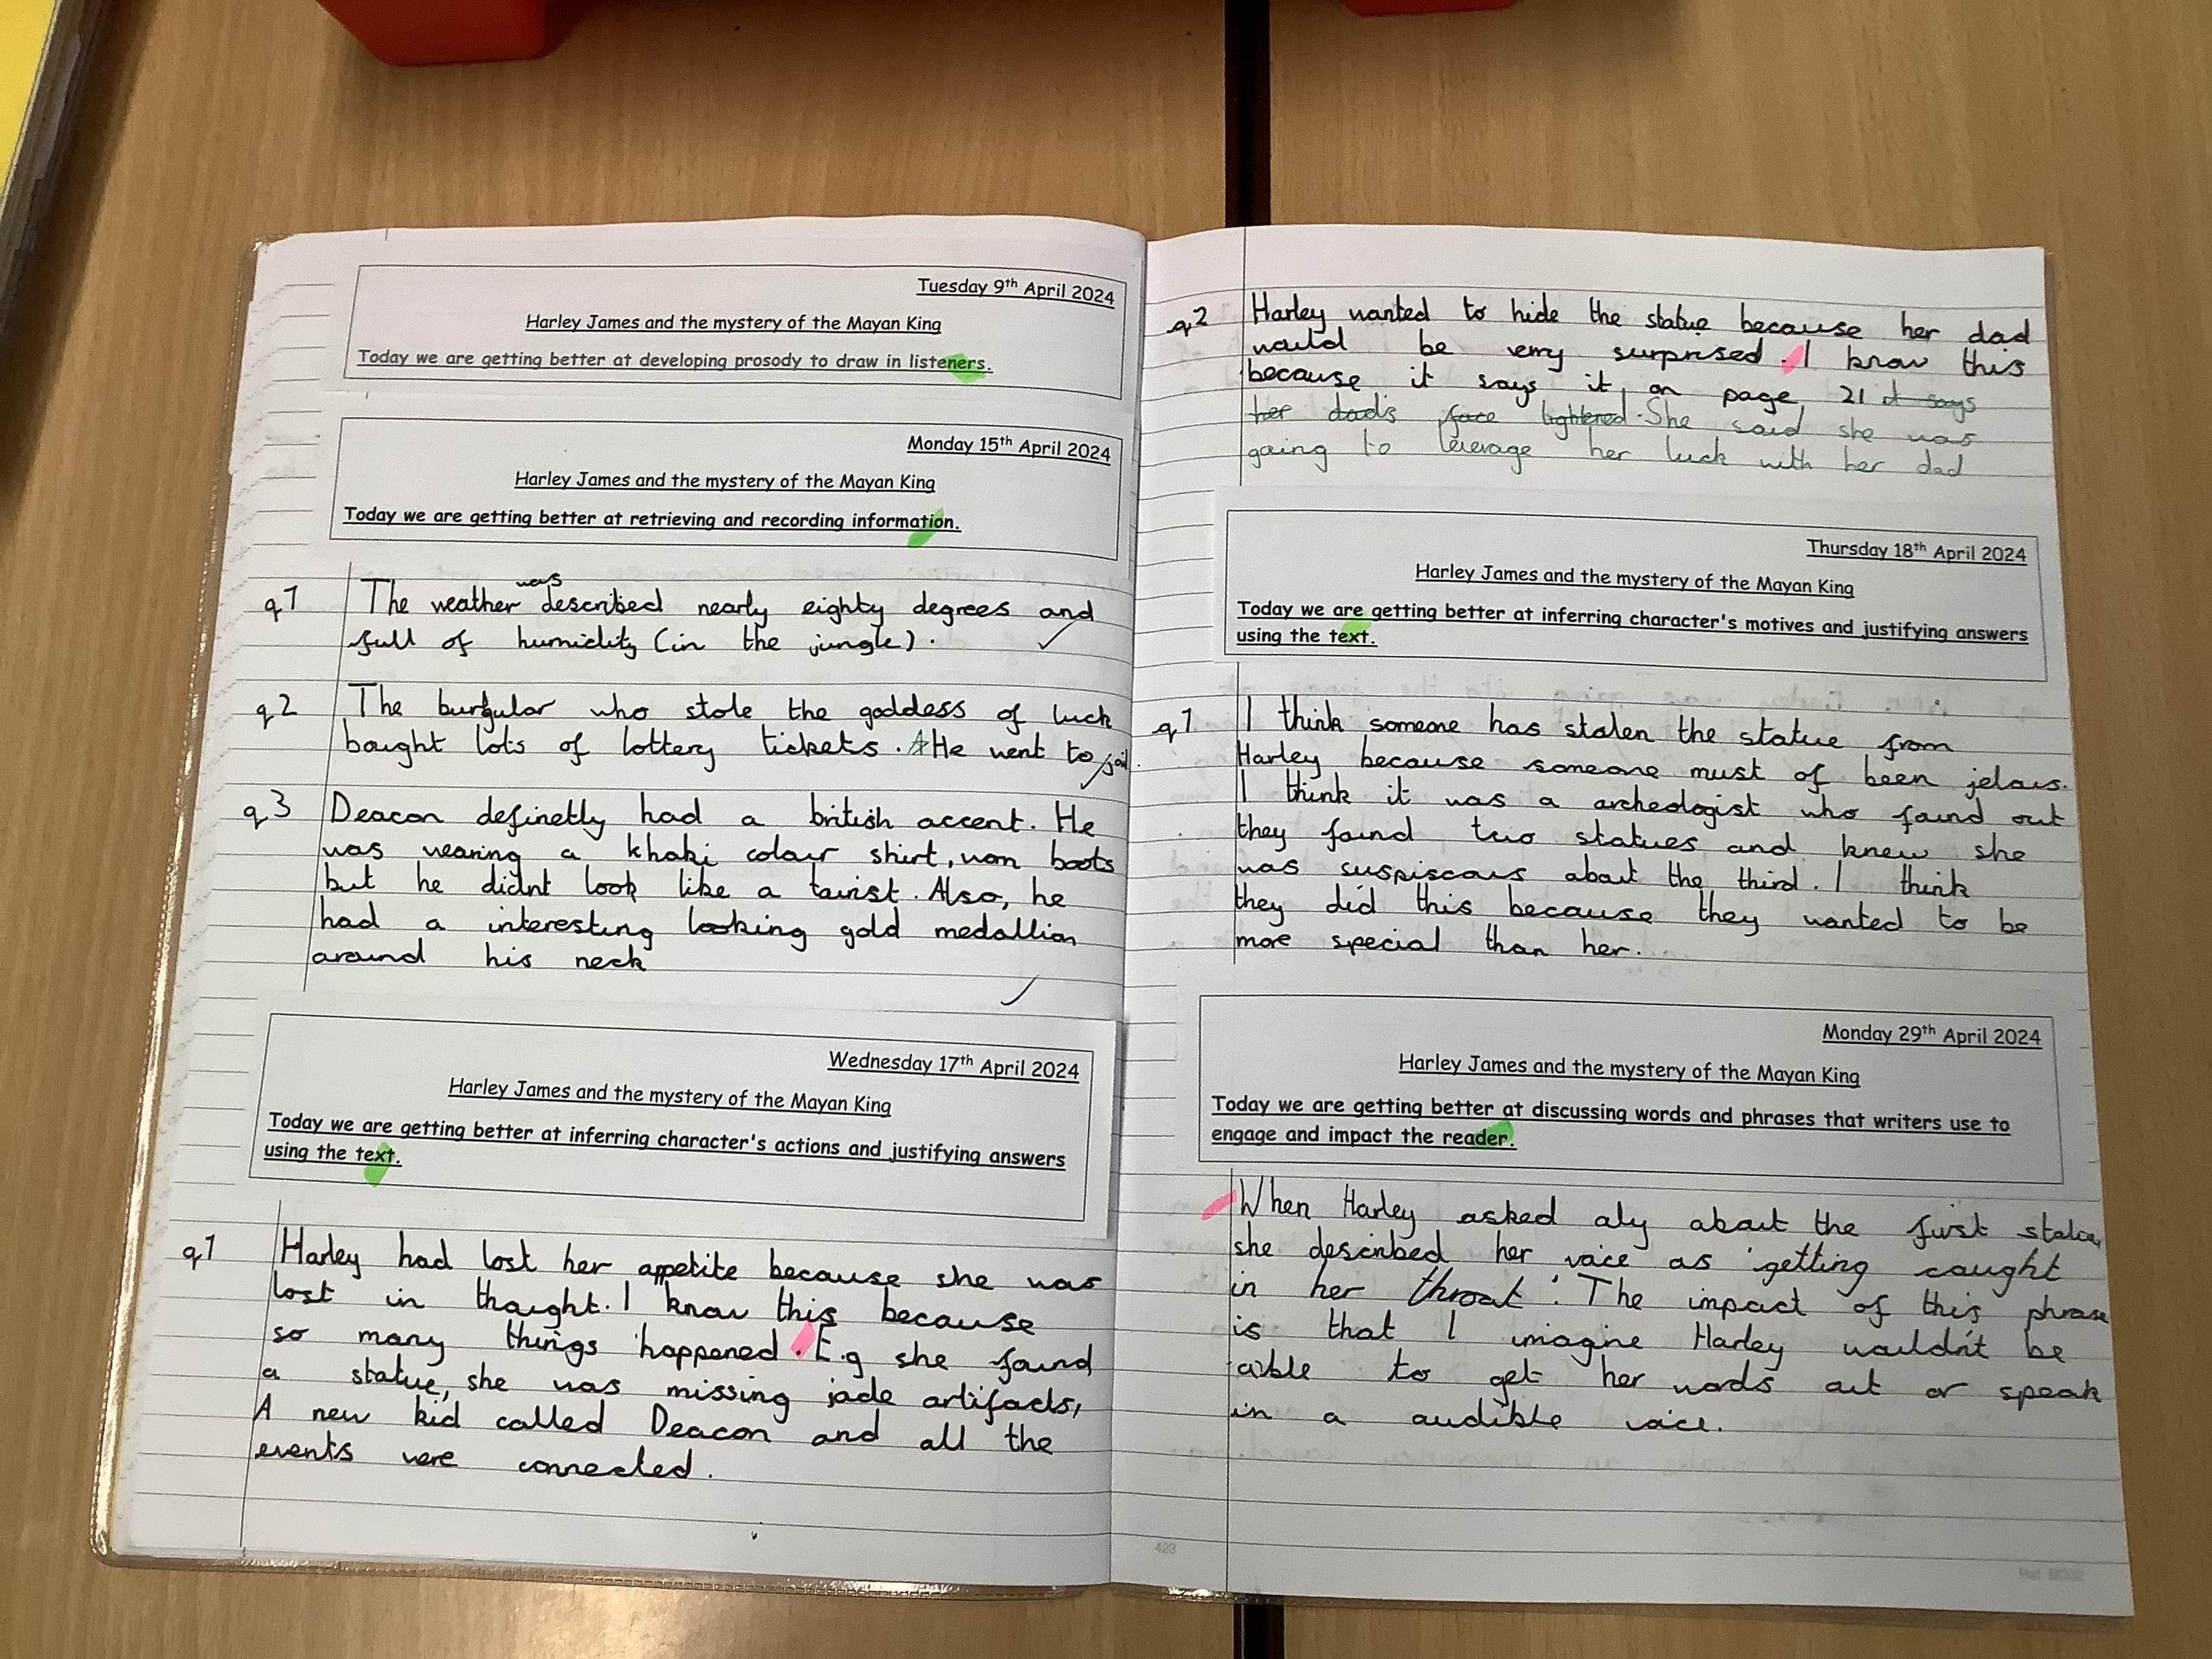 Tuesday 9th April 2024
Harley James and the mystery of the Mayan King
Today we are getting better at developing prosody to draw in listeners.
Monday 15th April 2024
Harley James and the mystery of the Mayan King
Today we are getting better at retrieving and recording information.
was
q1 The weather described nearly eighty degrees and
full of humidity (in the jungle).
q2 The burgular who stole the goddess of luck
bought lots of lottery tickets. He went to jail.
q3 Deacon definetly had a british accent. He
was wearing a khaki colour shirt, worn boots
but he didnt look like a tourist. Also, he
had a interesting looking gold medallion
around his neck
Wednesday 17th April 2024
Harley James and the mystery of the Mayan King
Today we are getting better at inferring character's actions and justifying answers
using the text.
q1 Harley had lost her appetite because she was
lost in thought. I know this because
so many things happened. E.g she found
a statue, she was missing jade artifacts,
A new kid called Deacon and all the
events were connected.
q2 Harley wanted to hide the statue because her dad
would be very surprised. I know this
because it says it on page 21 it says
her dads face lightened. She said she was
going to leverage her luck with her dad
Thursday 18th April 2024
Harley James and the mystery of the Mayan King
Today we are getting better at inferring character's motives and justifying answers
using the text.
q1 I think someone has stolen the statue from
Harley because someone must of been jelous.
I think it was a archeologist who found out
they found two statues and knew she
was suspiscous about the third. I think
they did this because they wanted to be
more special than her.
Monday 29th April 2024
Harley James and the mystery of the Mayan King
Today we are getting better at discussing words and phrases that writers use to
engage and impact the reader.
When Harley asked aly about the first
she described her voice as 'getting caught
in her throat'. The impact of this phrase
is that I imagine Harley wouldn't be
aible to get her words out or speak
in a audible voice.
423